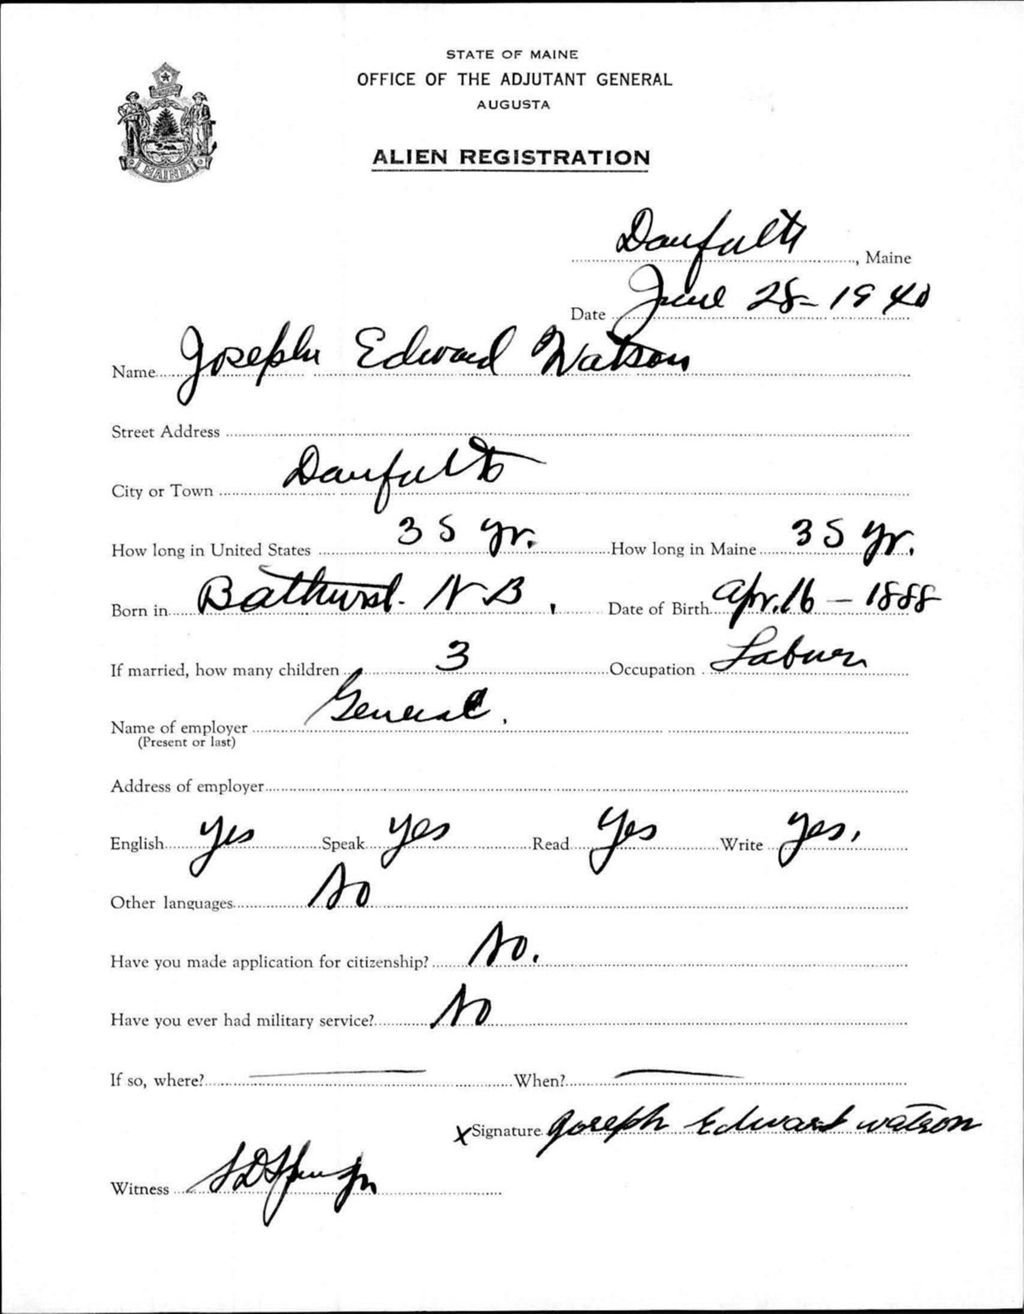 STATE OF MAINE
OFFICE OF THE ADJUTANT GENERAL
AUGUSTA
ALIEN REGISTRATION
MAINE
Danforth, Maine
Date June 28-1940
Name Joseph Edward Watson
Street Address
City or Town Danforth
How long in United States 35 yr. How long in Maine 35 yr.
Born in Bathurst. N B. Date of Birth Apr. 16 - 1888
If married, how many children 3 Occupation Laborer
Name of employer General.
(Present or last)
Address of employer
English Yes Speak Yes Read Yes Write Yes.
Other languages No
Have you made application for citizenship? No.
Have you ever had military service? No
If so, where? — When? —
X Signature Joseph Edward Watson
Witness